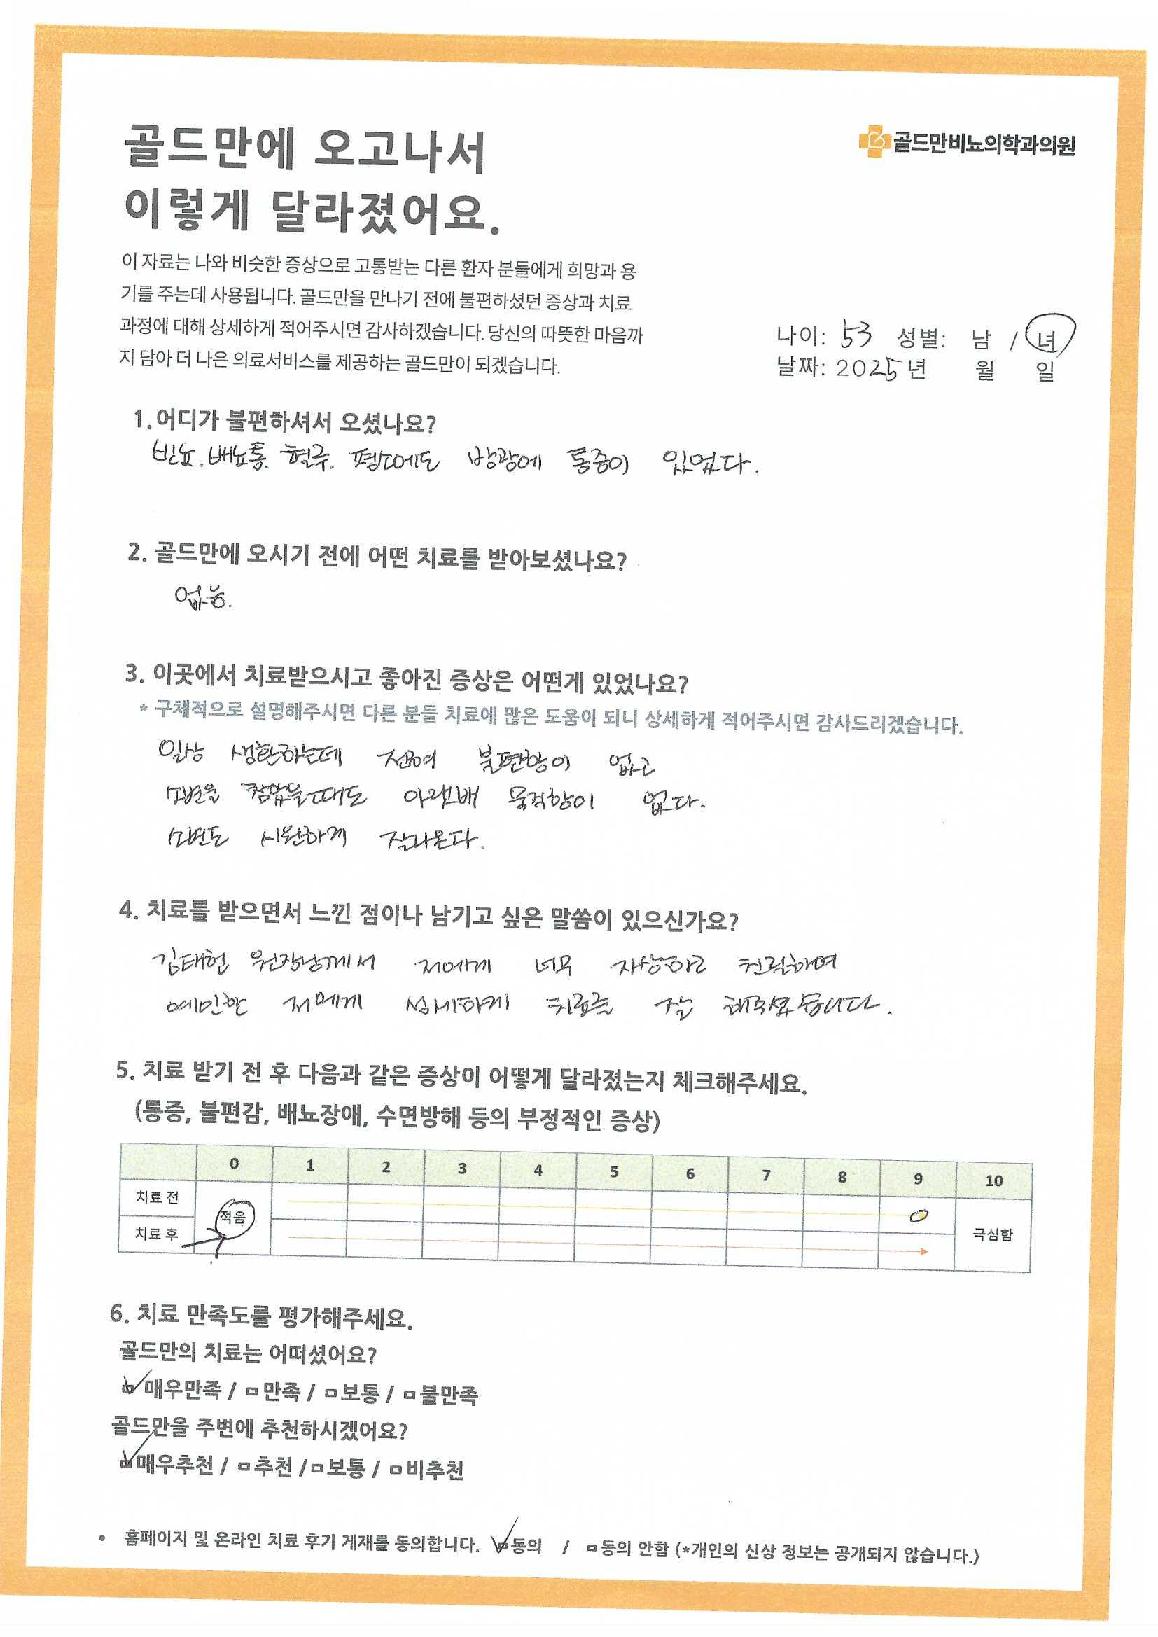 골드만에 오고나서
이렇게 달라졌어요.
골드만비뇨의학과의원
이 자료는 나와 비슷한 증상으로 고통받는 다른 환자 분들에게 희망과 용
기를 주는데 사용됩니다. 골드만을 만나기 전에 불편하셨던 증상과 치료
과정에 대해 상세하게 적어주시면 감사하겠습니다. 당신의 따뜻한 마음까
지 담아 더 나은 의료서비스를 제공하는 골드만이 되겠습니다.
나이: 53 성별: 남 / 녀
날짜: 2025년 월 일
1. 어디가 불편하셔서 오셨나요?
빈뇨. 배뇨통. 혈뇨. 평소에도 방광에 통증이 있었다.
2. 골드만에 오시기 전에 어떤 치료를 받아보셨나요?
없음.
3. 이곳에서 치료받으시고 좋아진 증상은 어떤게 있었나요?
* 구체적으로 설명해주시면 다른 분들 치료에 많은 도움이 되니 상세하게 적어주시면 감사드리겠습니다.
일상 생활하는데 전혀 불편함이 없고
소변을 참았을때도 아랫배 묵직함이 없다.
소변도 시원하게 잘나온다.
4. 치료를 받으면서 느낀 점이나 남기고 싶은 말씀이 있으신가요?
김태헌 원장님께서 저에게 너무 자상하고 친절하며
예민한 저에게 섬세하게 치료를 잘 해주셨습니다.
5. 치료 받기 전 후 다음과 같은 증상이 어떻게 달라졌는지 체크해주세요.
(통증, 불편감, 배뇨장애, 수면방해 등의 부정적인 증상)
0 1 2 3 4 5 6 7 8 9 10
치료 전
적음
치료 후
극심함
6. 치료 만족도를 평가해주세요.
골드만의 치료는 어떠셨어요?
매우만족 / □만족 / □보통 / □불만족
골드만을 주변에 추천하시겠어요?
매우추천 / □추천 / □보통 / □비추천
• 홈페이지 및 온라인 치료 후기 게재를 동의합니다. 동의 / □동의 안함 (*개인의 신상 정보는 공개되지 않습니다.)